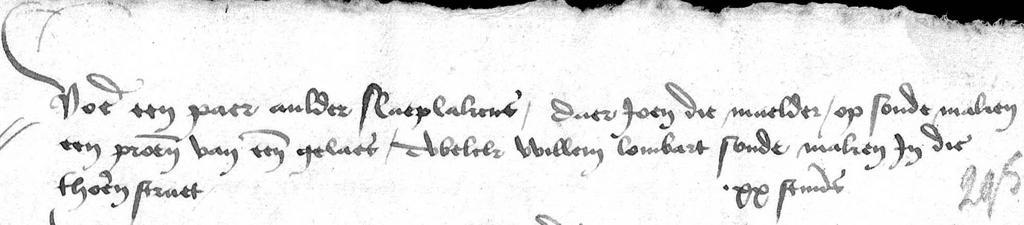 Voer een paer aulder slaeplakens / daer Joen die maelder / op sonde maken
een proen van een gelaes / Twelck Willem lombart sonde maken In die
thoren straet xx stuvers
246